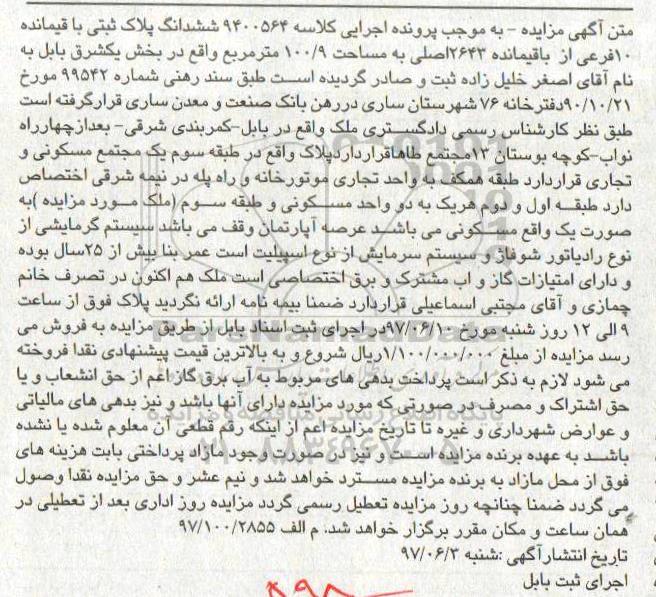 متن آگهی مزایده - به موجب پرونده اجرایی کلاسه ۹۴۰۰۵۶۴ ششدانگ پلاک ثبتی با قیمانده
۱۰فرعی از باقیمانده ۲۶۴۳اصلی به مساحت ۱۰۰/۹ مترمربع واقع در بخش یکشرق بابل به
نام آقای اصغر خلیل زاده ثبت و صادر گردیده است طبق سند رهنی شماره ۹۹۵۴۲ مورخ
۹۰/۱۰/۲۱دفترخانه ۷۶ شهرستان ساری دررهن بانک صنعت و معدن ساری قرارگرفته است
طبق نظر کارشناس رسمی دادگستری ملک واقع در بابل-کمربندی شرقی- بعدازچهارراه
نواب-کوچه بوستان ۱۳مجتمع طاهاقرارداردپلاک واقع در طبقه سوم یک مجتمع مسکونی و
تجاری قراردارد طبقه همکف به واحد تجاری موتورخانه و راه پله در نیمه شرقی اختصاص
دارد طبقه اول و دوم هریک به دو واحد مسکونی و طبقه سوم (ملک مورد مزایده )به
صورت یک واقع مسکونی می باشد عرصه آپارتمان وقف می باشد سیستم گرمایشی از
نوع رادیاتور شوفاژ و سیستم سرمایش از نوع اسپیلیت است عمر بنا بیش از ۲۵سال بوده
و دارای امتیازات گاز و اب مشترک و برق اختصاصی است ملک هم اکنون در تصرف خانم
چمازی و آقای مجتبی اسماعیلی قراردارد ضمنا بیمه نامه ارائه نگردید پلاک فوق از ساعت
۹ الی ۱۲ روز شنبه مورخ ۹۷/۰۶/۱۰در اجرای ثبت اسناد بابل از طریق مزایده به فروش می
رسد مزایده از مبلغ ۱/۱۰۰/۰۰۰/۰۰۰ریال شروع و به بالاترین قیمت پیشنهادی نقدا فروخته
می شود لازم به ذکر است پرداخت بدهی های مربوط به آب برق گاز اعم از حق انشعاب و یا
حق اشتراک و مصرف در صورتی که مورد مزایده دارای آنها باشد و نیز بدهی های مالیاتی
و عوارض شهرداری و غیره تا تاریخ مزایده اعم از اینکه رقم قطعی آن معلوم شده یا نشده
باشد به عهده برنده مزایده است و نیز در صورت وجود مازاد پرداختی بابت هزینه های
فوق از محل مازاد به برنده مزایده مسترد خواهد شد و نیم عشر و حق مزایده نقدا وصول
می گردد ضمنا چنانچه روز مزایده تعطیل رسمی گردد مزایده روز اداری بعد از تعطیلی در
همان ساعت و مکان مقرر برگزار خواهد شد. م الف ۹۷/۱۰۰/۲۸۵۵
تاریخ انتشارآگهی :شنبه ۹۷/۰۶/۳
اجرای ثبت بابل
ParsNamadData
۰۲۱-۸۸۳۴۹۶۷۰-۵